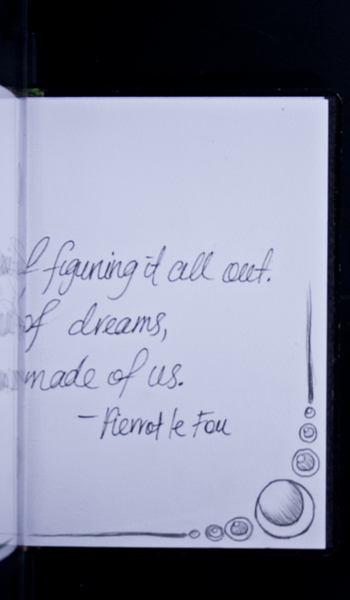 figuring it all out.
of dreams,
made of us.
- Pierrot le Fou